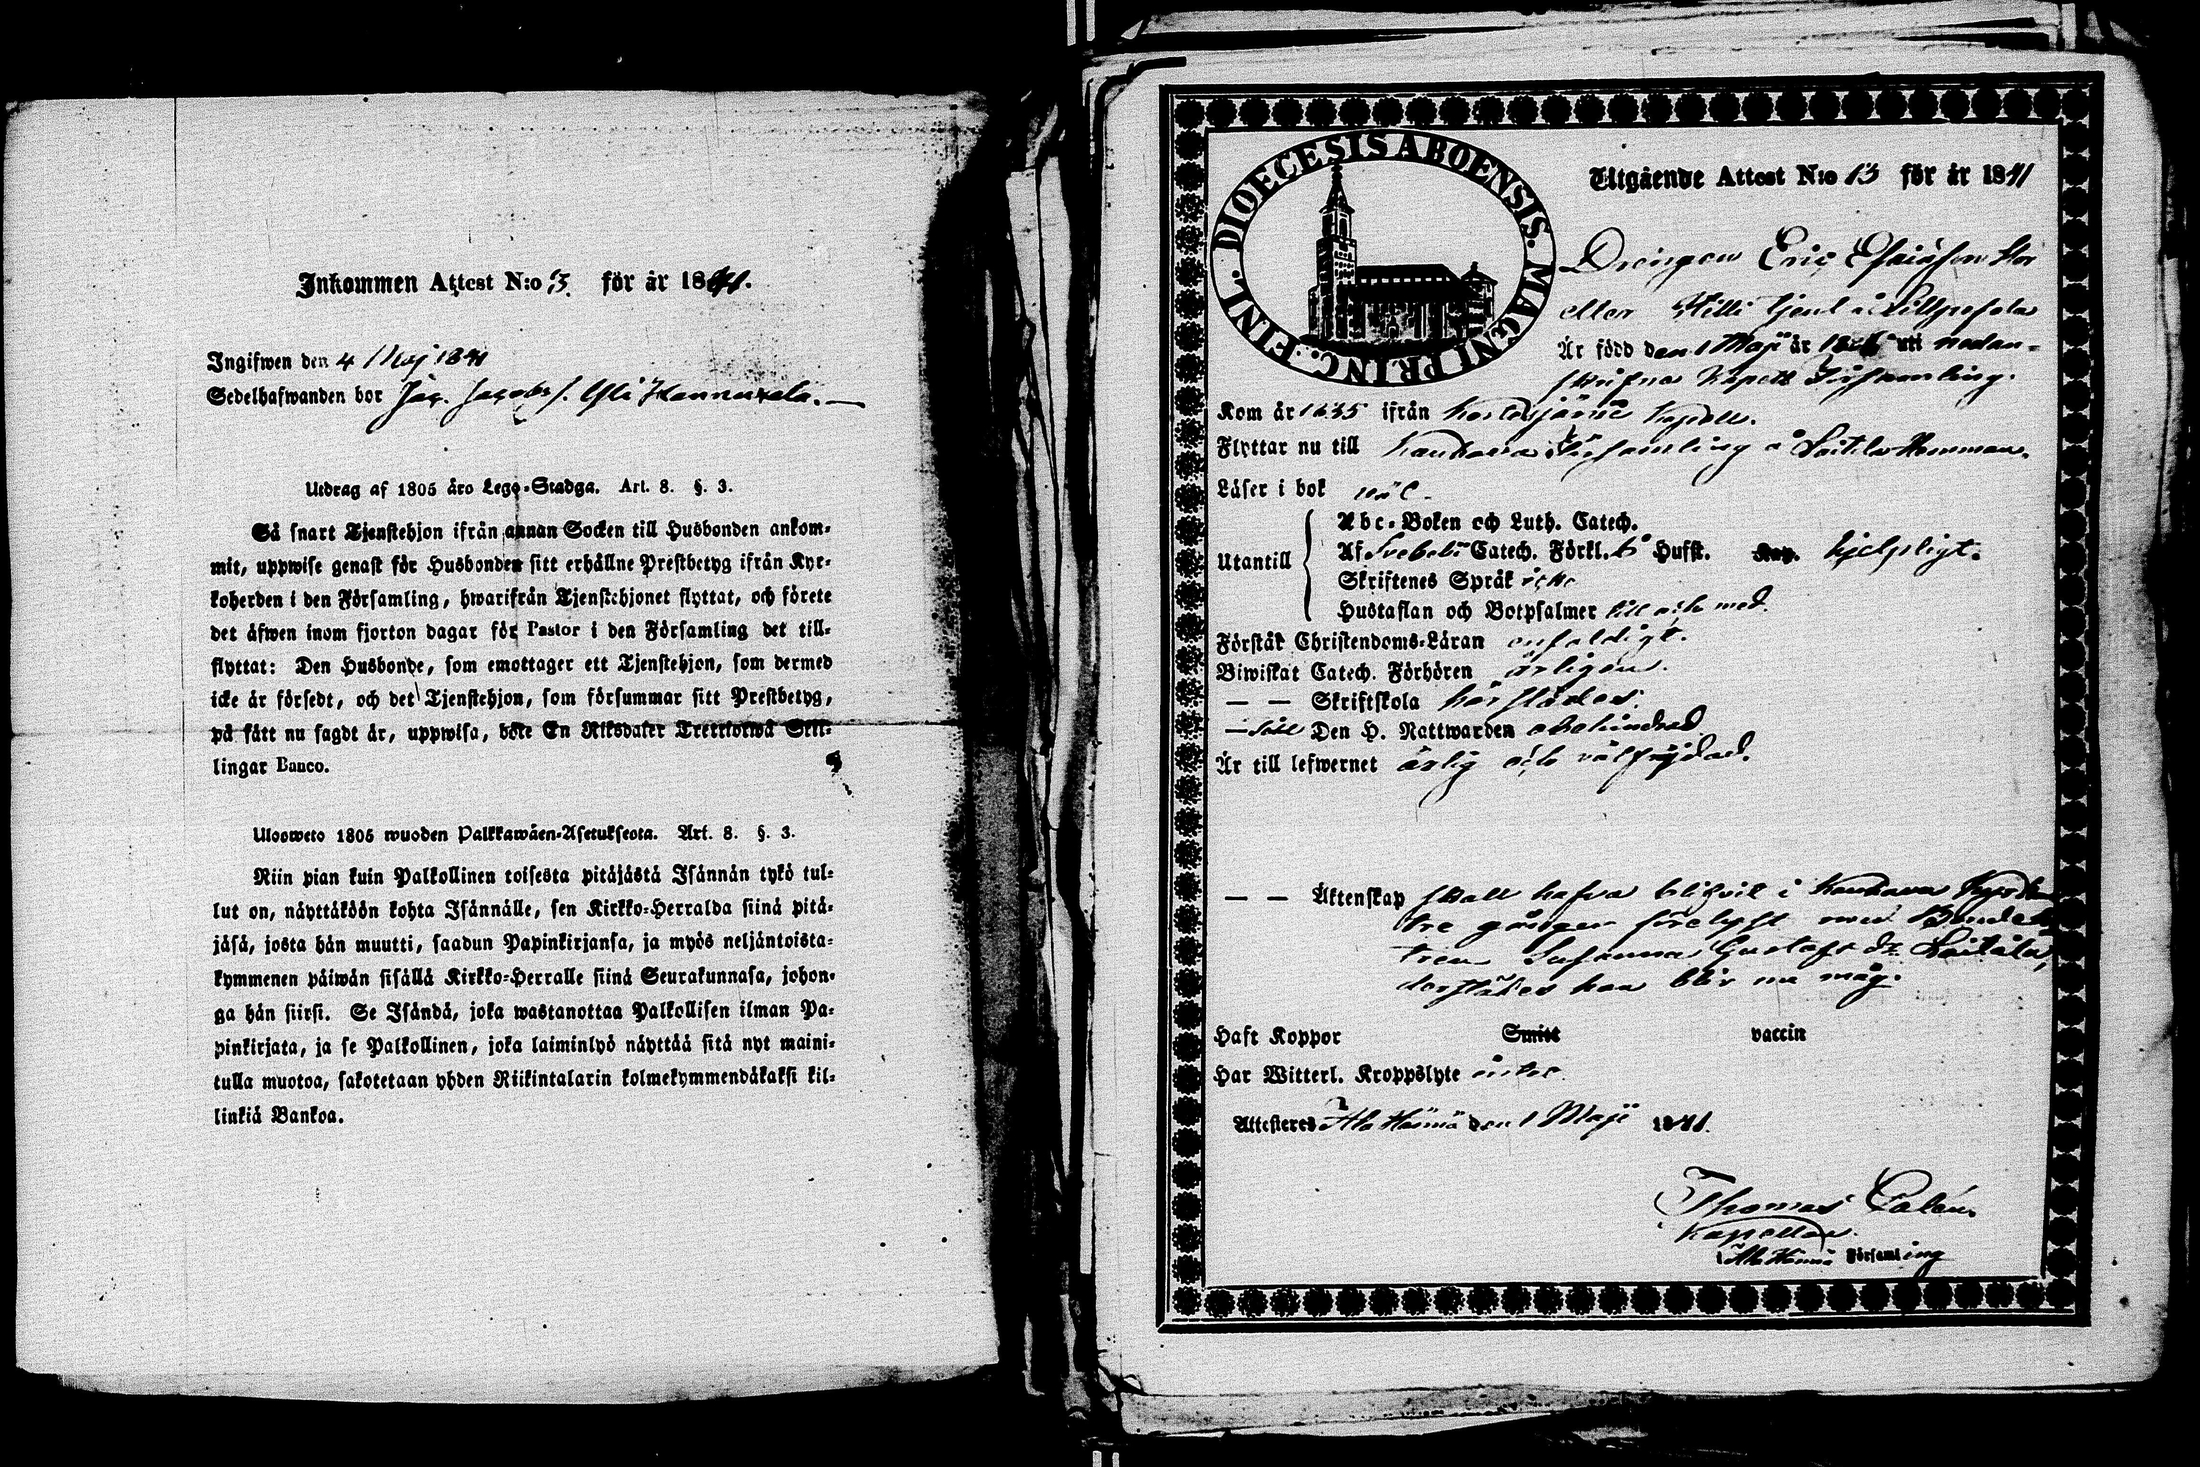 Inkommen Attest N:o 13. för år 1841.
Ingifwen den 4 Maj 1841
Sedelhafwanden bor Jac. Jacobs s. Yli Hannuxela.
Utdrag af 1805 års Lego-Stadga. Art. 8. §. 3.
Så snart Tjenstehjon ifrån annan Socken till Husbonden ankom-
mit, uppwise genast för Husbonden sitt erhållne Prestbetyg ifrån Kyr-
koherden i den Församling, hwarifrån Tjenstehjonet flyttat, och förete
det äfwen inom fjorton dagar för Pastor i den Församling det till-
flyttat: Den Husbonde, som emottager ett Tjenstehjon, som dermed
icke är försedt, och det Tjenstehjon, som försummar sitt Prestbetyg,
på sätt nu sagdt är, uppwisa, böte En Riksdaler Trettiotwå Skil-
lingar Banco.
Ulosweto 1805 wuoden Palkkawäen-Asetuksesta. Art. 8. §. 3.
Niin pian kuin Palkollinen toisesta pitäjästä Isännän tykö tul-
lut on, näyttäköön kohta Isännälle, sen Kirkko-Herralda siinä pitä-
jäsä, josta hän muutti, saadun Papinkirjansa, ja myös neljäntoista-
kymmenen päiwän sisällä Kirkko-Herralle siinä Seurakunnasa, johon-
ga hän siirsi. Se Isändä, joka wastanottaa Palkollisen ilman Pa-
pinkirjata, ja se Palkollinen, joka laiminlyö näyttää sitä nyt maini-
tulla muotoa, sakotetaan yhden Riikintalarin kolmekymmendäkaksi kil-
linkiä Bankoa.
DIOECESIS ABOENSIS. MAGNI PRINC. FINL.
Utgående Attest N:o 13 för år 1841
Drengen Eric Esaiasson
eller tjent å
Är född den 1 Maji år uti nedan-
skrifna Kapell Församling.
Kom år 1835 ifrån Kortesjärvi Kapell.
Flyttar nu till Kauhava Församling å Hemman.
Läser i bok väl.
Utantill
Abc-Boken och Luth. Catech.
Af Svebeli Catech. Förkl. Hufst. hjelpligt.
Skriftenes Språk icke
Hustaflan och Botpsalmer till och med.
Förstår Christendoms-Läran enfaldigt.
Biwistat Catech. Förhören årligen.
— — Skriftskola härstädes.
— Den H. Nattwarden obehindrad
Är till lefwernet ärlig och välfrejdad.
— — Äktenskap skall hafva blifvit i Kauhava
tre gånger förelyst med
Susanna Gustafs dr
derstädes han blir nu måg.
Haft Koppor Smitt vaccin
Har Witterl. Kroppslyte icke.
Attesteres Ala Härmä den 1 Maji 1841.
Thomas
Kapellan
i Ala Härmä Församling